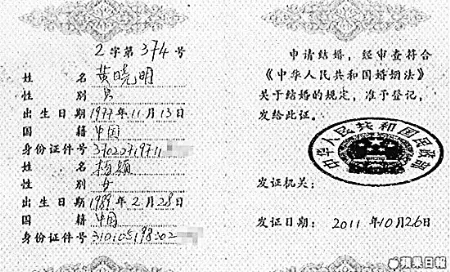 2字第374号
姓 名 黄晓明
性 别 男
出生日期 1977年11月13日
国 籍 中国
身份证件号 370207197711
姓 名 杨颖
性 别 女
出生日期 1989年2月28日
国 籍 中国
身份证件号 310105198902
申请结婚，经审查符合
《中华人民共和国婚姻法》
关于结婚的规定，准予登记，
发给此证。
中华人民共和国民政部
发证机关：
发证日期： 2011年10月26日
蘋果日報